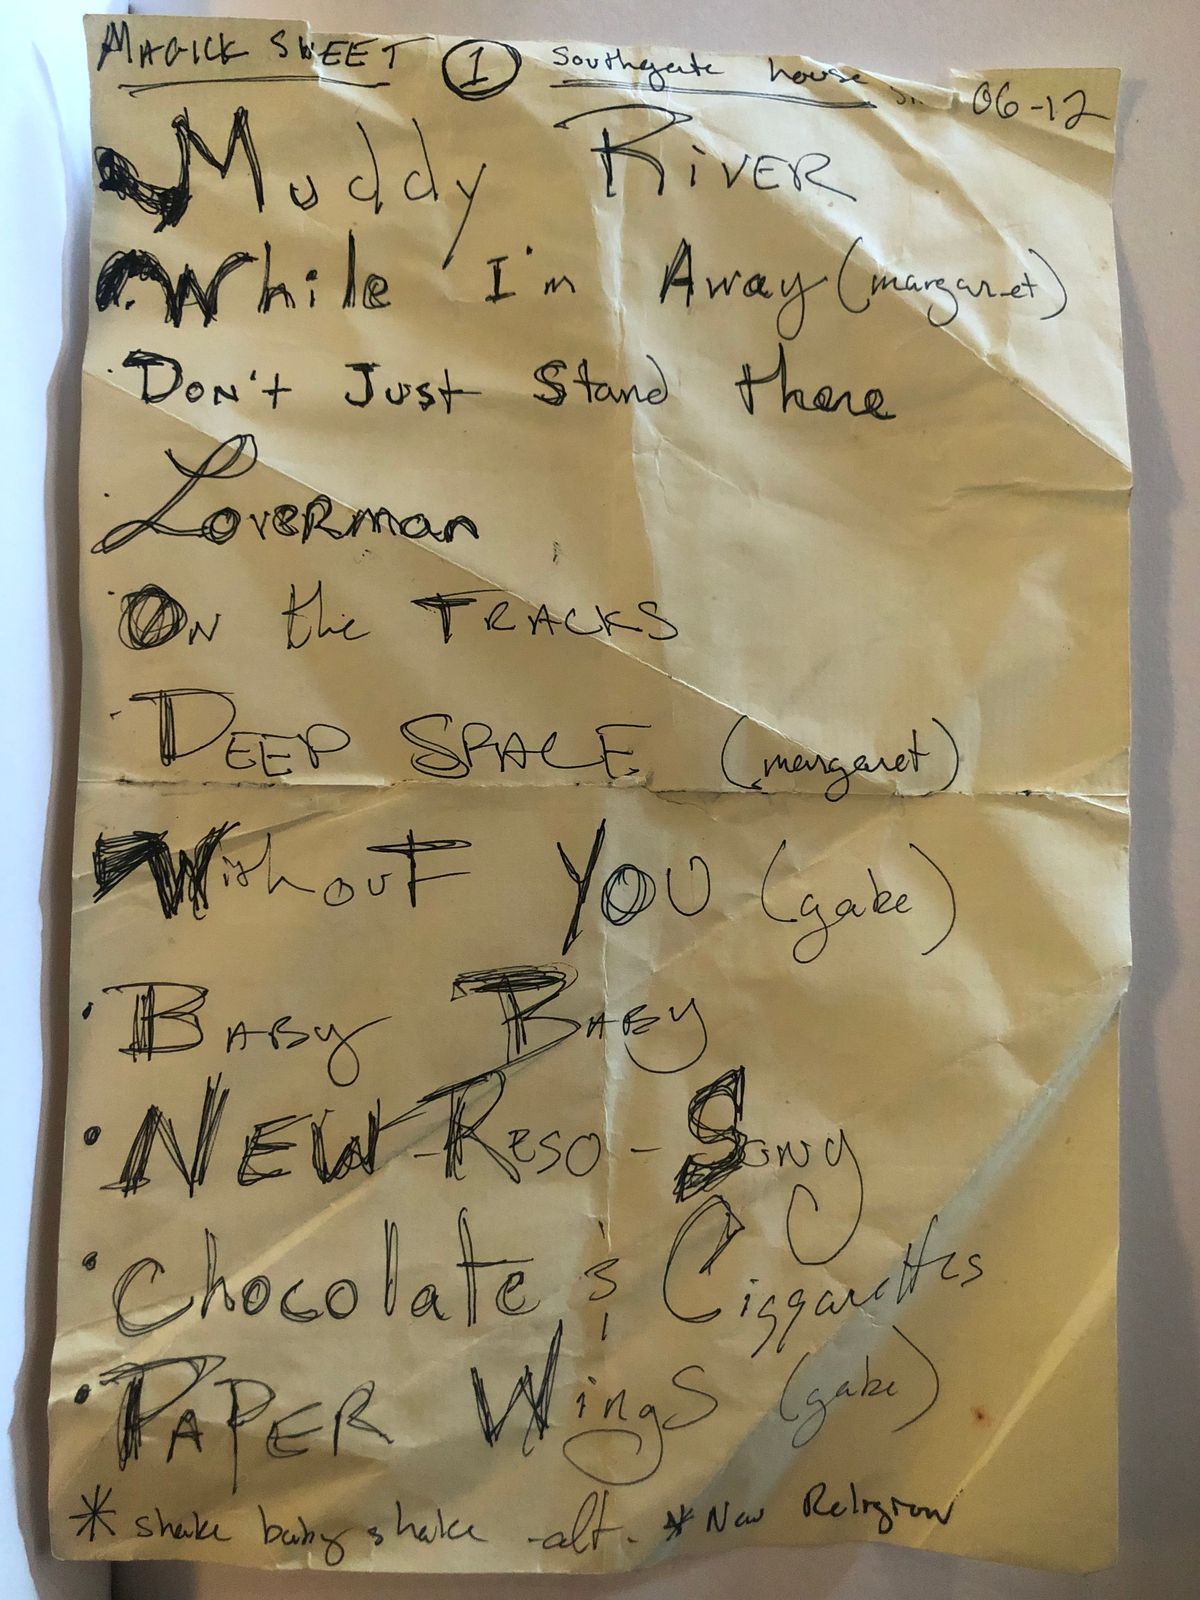 MAGICK SWEET 1 Southgate house 06-12
Muddy RiVER
While I'm Away (margaret)
DON't JUST Stand there
Loverman
ON the TRACKS
DEEP SPACE (margaret)
WithouT YOU (gabe)
BABY BABY
NEW-RESO-SONG
Chocolate & Ciggarettes
PAPER WingS (gabe)
* shake baby shake -alt. * New Religion